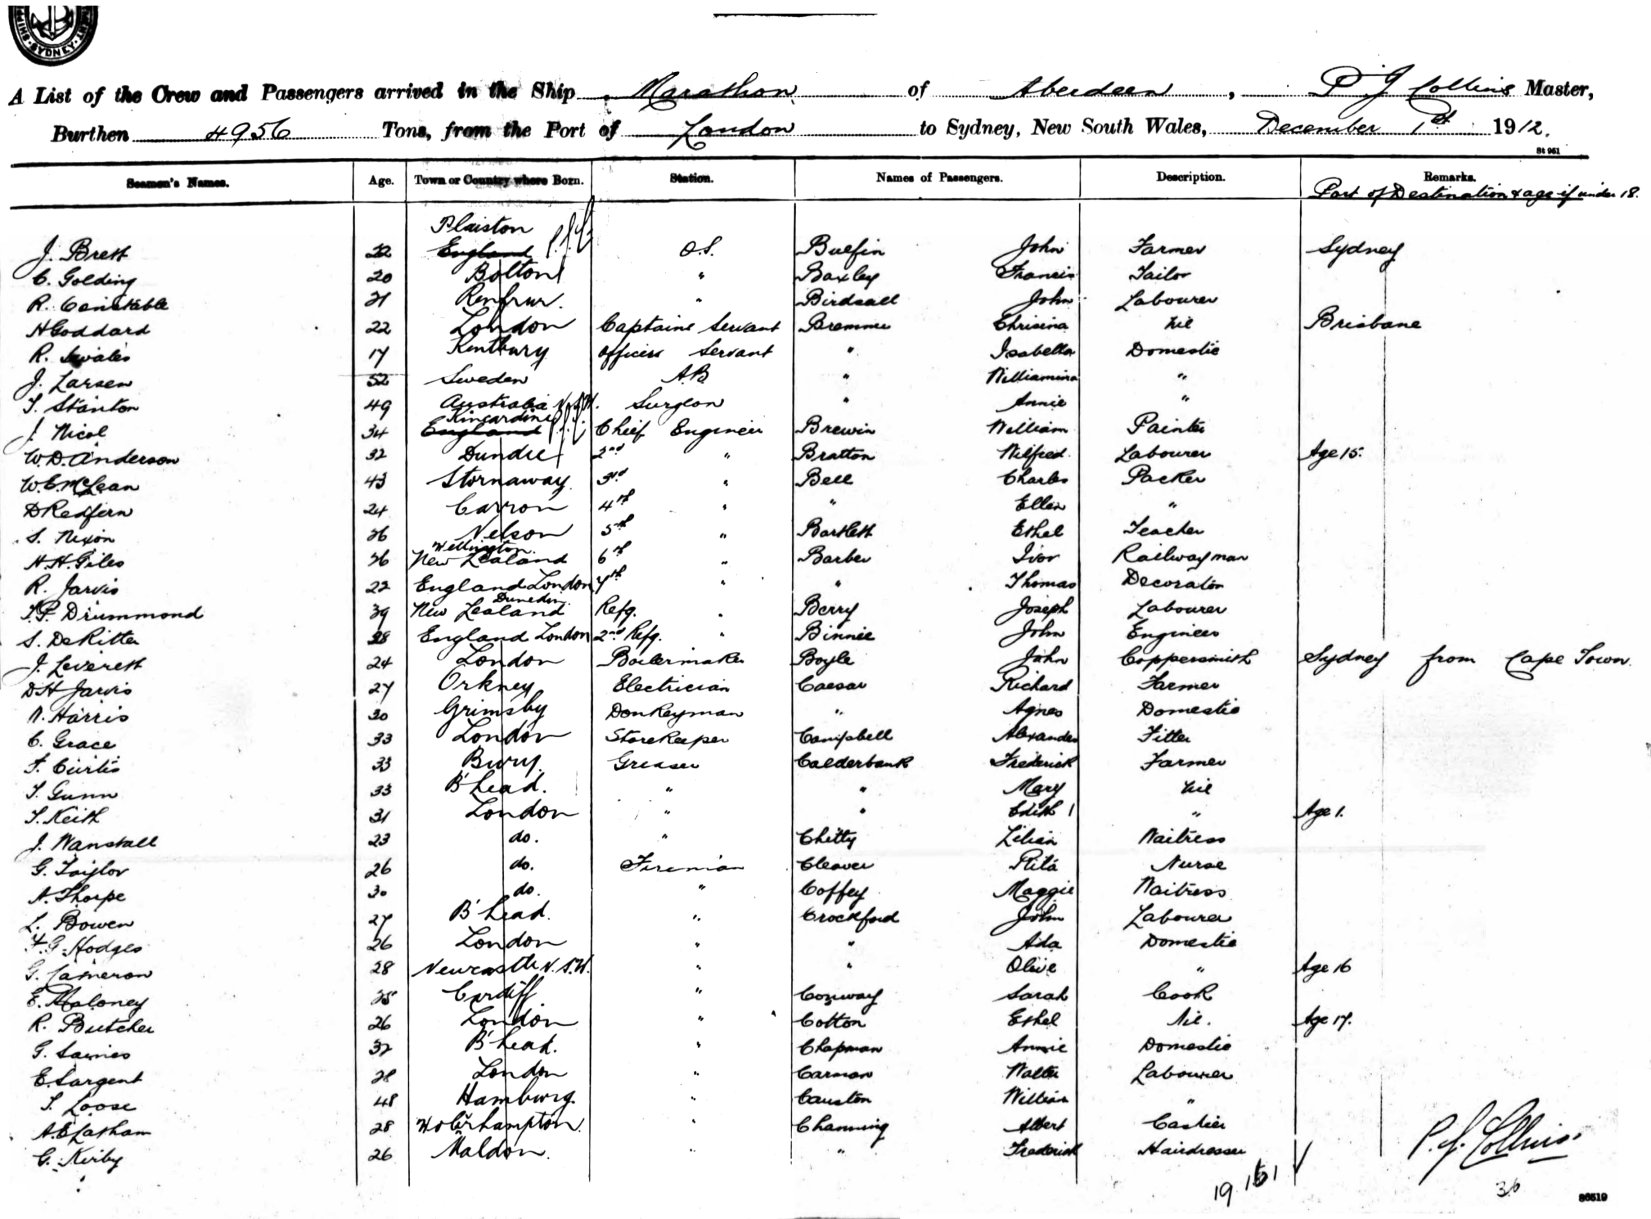 SYDNEY
A List of the Crew and Passengers arrived in the Ship Marathon of Aberdeen, P J Collins Master,
Burthen 4956 Tons, from the Port of London to Sydney, New South Wales, December 1st 1912.
St 961
Seamen's Names. Age. Town or Country where Born. Station. Names of Passengers. Description. Remarks.
Port of Destination & age if under 18.
Plaiston
J. Brett 22 England O.S. Bulfin John Farmer Sydney
C. Golding 20 Bolton " Baxley Francis Tailor
R. Constable 21 Renfrew. " Birdsall John Labourer
H Goddard 22 London Captains Servant Bremner Chrisina Nil Brisbane
R. Swales 17 Kentbury Officers Servant " Isabella Domestic
J. Larsen 52 Sweden A.B " Williamina "
T. Stanton 49 Australia N.S.W. Surgeon " Annie "
Kincardine
J. Nicol 34 England Chief Engineer Brewin William Painter
W.D. Anderson 32 Dundee 2nd " Bratton Wilfred Labourer Age 15.
W.C. McLean 43 Stornaway 3rd " Bell Charles Packer
D Redfern 24 Carron 4th " " Ellen "
S. Nixon 26 Nelson 5th " Bartlett Ethel Teacher
Wellington
H.H. Giles 26 New Zealand 6th " Barber Ivor Railwayman
R. Jarvis 22 England London 7th " " Thomas Decorator
Dunedin
T.P. Drummond 39 New Zealand Refg. " Berry Joseph Labourer
S. DeRitter 28 England London 2nd Refg. " Binnie John Engineer
J. Leverett 24 London Boilermaker Boyle John Coppersmith Sydney from Cape Town.
D H Jarvis 27 Orkney Electrician Caesar Richard Farmer
N. Harris 30 Grimsby Donkeyman " Agnes Domestic
C. Grace 33 London Storekeeper Campbell Alexander Fitter
F. Curtis 33 Bury. Greaser Calderbank Frederick Farmer
T. Gunn 33 B'head. " " Mary Nil
T. Keith 31 London " " Edith 1 " Age 1.
J. Wanstall 23 do. " Chitty Lilian Waitress
G. Taylor 26 do. Fireman Cleaver Rita Nurse
A. Thorpe 30 do. " Coffey Maggie Waitress
L. Bowen 27 B'head. " Crockford John Labourer
F.G. Hodges 26 London " " Ada Domestic
G. Cameron 28 Newcastle N.S.W. " " Olive " Age 16
E. Maloney 25 Cardiff " Conway Sarah Cook
R. Butcher 26 London " Cotton Ethel Nil. Age 17.
G. Sawies 32 B'head. " Chapman Annie Domestic
E. Sargent 28 London " Carman Walter Labourer
T. Loose 48 Hamburg. " Causton William "
A.E Latham 28 Wolverhampton. " Channing Albert Cashier
G. Kirby 26 Maldon. " " Frederick Hairdresser
P. J. Collins.
19 151
36
86519